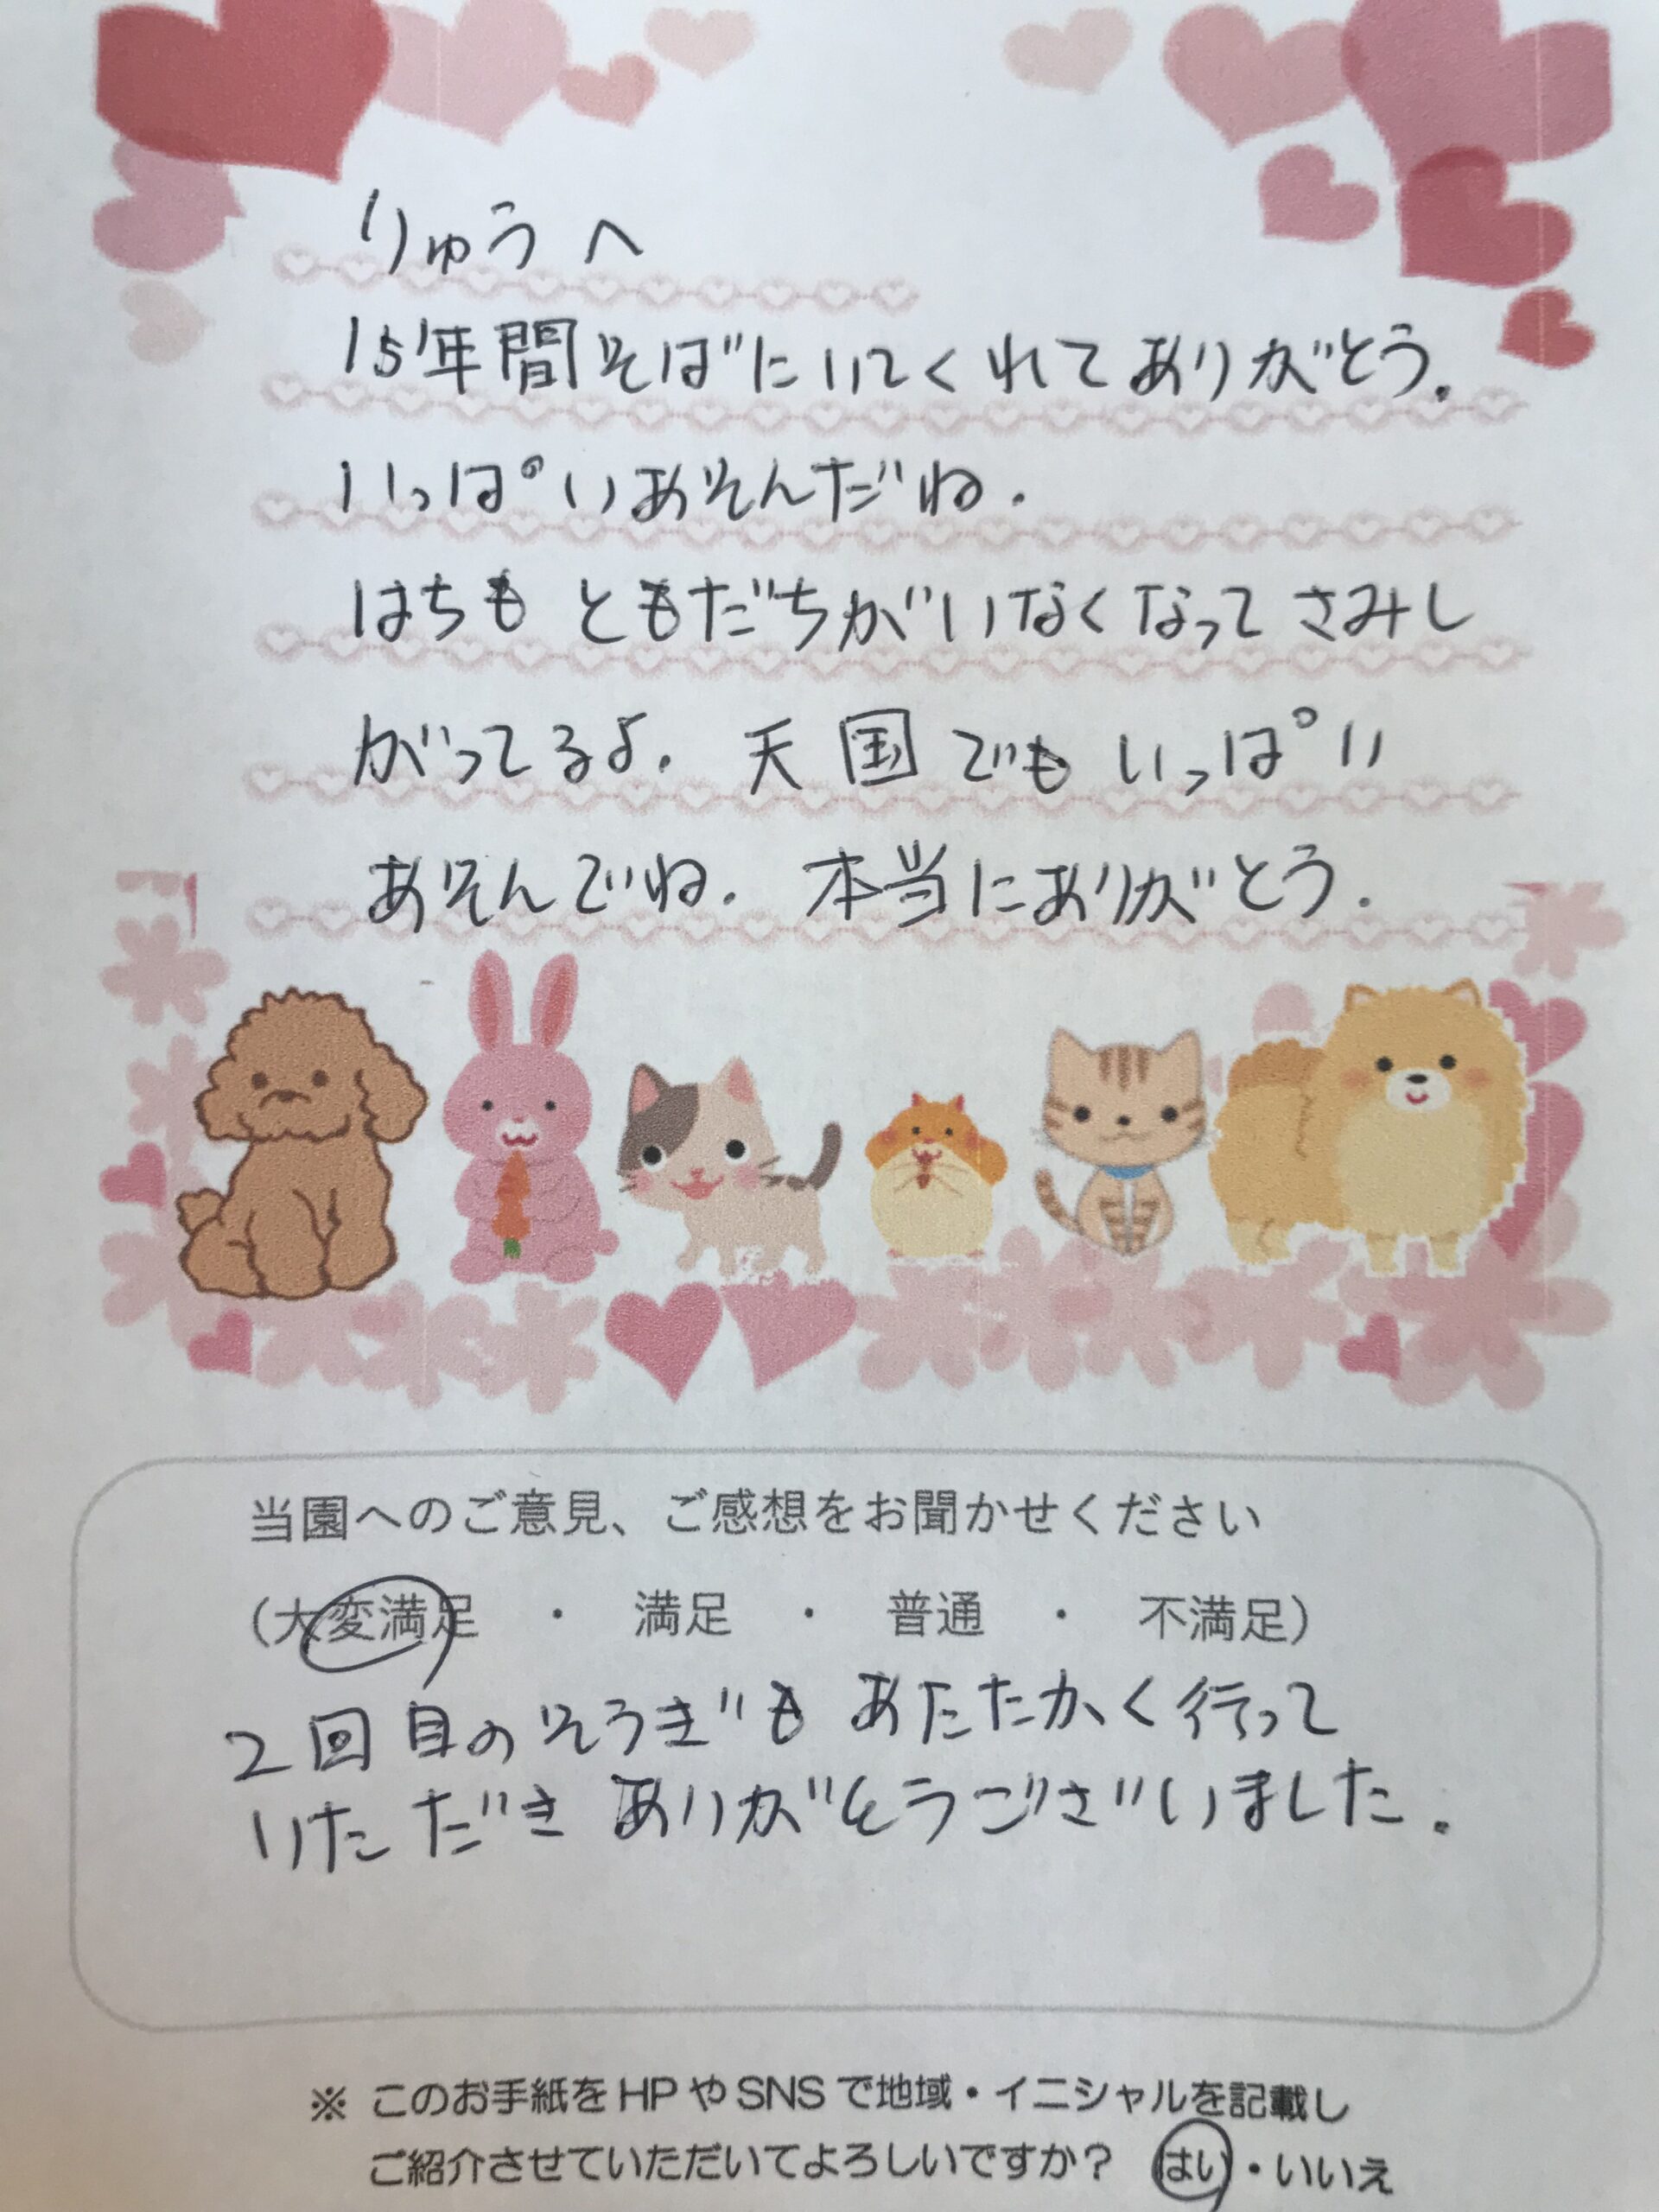 りゅうへ
15年間そばにいてくれてありがとう.
いっぱいあそんだね.
はちもともだちがいなくなってさみし
がってるよ. 天国でもいっぱい
あそんでね. 本当にありがとう.
当園へのご意見、ご感想をお聞かせください
(大変満足 ・ 満足 ・ 普通 ・ 不満足)
2回目のそうぎもあたたかく行って
いただきありがとうございました.
※ このお手紙をHPやSNSで地域・イニシャルを記載し
ご紹介させていただいてよろしいですか? はい・いいえ